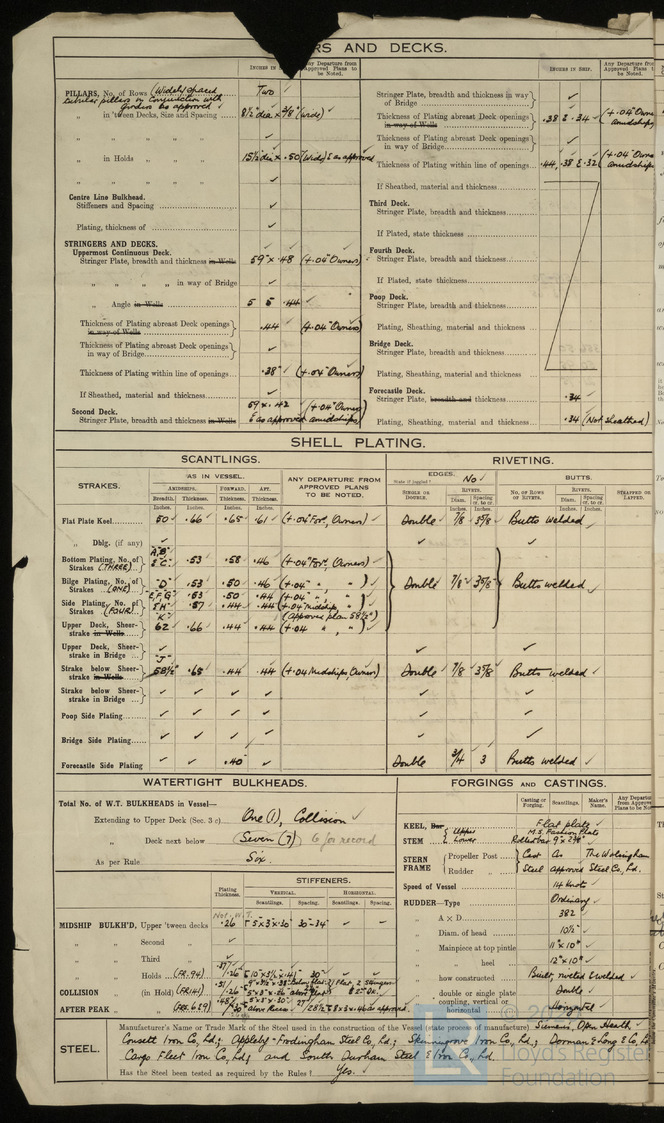 RS AND DECKS.
INCHES IN
Any Departure from Approved Plans to be Noted.
PILLARS, No. of Rows (Widely spaced tubular pillars in conjunction with girders as approved Two ✓
„ in 'tween Decks, Size and Spacing 8½" dia × 3/8 (Wide) ✓
„ in Holds „ „ 15½ dia × .50 (Wide) & as approved
Centre Line Bulkhead.
Stiffeners and Spacing ✓
Plating, thickness of ✓
STRINGERS AND DECKS.
Uppermost Continuous Deck.
Stringer Plate, breadth and thickness in Wells 59" × .48 (+.04" Owners) ✓
„ „ „ „ in way of Bridge ✓
„ Angle in Wells 5 5 .44 ✓
Thickness of Plating abreast Deck openings in way of Wells .44 (+.04" Owners)
Thickness of Plating abreast Deck openings in way of Bridge ✓
Thickness of Plating within line of openings .38" (+.04" Owners)
If Sheathed, material and thickness ✓
Second Deck.
Stringer Plate, breadth and thickness in Wells 59 × .42 & as approved (+.04" Owners amidships)
INCHES IN SHIP.
Any Departure from Approved Plans to be Noted.
Stringer Plate, breadth and thickness in way of Bridge ✓
Thickness of Plating abreast Deck openings in way of Wells .38 & .34 ✓ (+.04" Owners amidships
Thickness of Plating abreast Deck openings in way of Bridge ✓
Thickness of Plating within line of openings .44, .38 & .32 (+.04" Owners amidships
If Sheathed, material and thickness
Third Deck.
Stringer Plate, breadth and thickness
If Plated, state thickness
Fourth Deck.
Stringer Plate, breadth and thickness
If Plated, state thickness
Poop Deck.
Stringer Plate, breadth and thickness
Plating, Sheathing, material and thickness
Bridge Deck.
Stringer Plate, breadth and thickness
Plating, Sheathing, material and thickness
Forecastle Deck.
Stringer Plate, breadth and thickness .34 ✓
Plating, Sheathing, material and thickness .34 (Not Sheathed)
SHELL PLATING.
SCANTLINGS.
RIVETING.
STRAKES.
AS IN VESSEL.
AMIDSHIPS. FORWARD. AFT.
Breadth. Thickness. Thickness. Thickness.
Inches. Inches. Inches. Inches.
ANY DEPARTURE FROM APPROVED PLANS TO BE NOTED.
EDGES.
State if joggled? No ✓
SINGLE OR DOUBLE.
RIVETS.
Diam. Spacing cr. to cr.
BUTTS.
NO. OF ROWS OF RIVETS.
RIVETS.
Diam. Spacing cr. to cr.
STRAPPED OR LAPPED.
Flat Plate Keel 50 ✓ .66 ✓ .65 ✓ .61 ✓ (+.04 For'd, Owners) ✓ Double 7/8 3 5/8 Butts welded ✓
„ Dblg. (if any) ✓
Bottom Plating, No. of Strakes (THREE) A, B" & C" .53 .58 .46 (+.04" For'd, Owners)
Bilge Plating, No. of Strakes (ONE) "D" .53 .50 .46 (+.04 „ „ ) Double 7/8 3 5/8 Butts welded
Side Plating, No. of Strakes (FOUR) E, F, G" & H" .53 .50 .44 (+.04" „ „
.57 .44 .44 (+.04 Midships, „
Upper Deck, Sheerstrake in Wells "K" 62 .66 .44 .44 (approved plan 58½") (+.04 „ „ )
Upper Deck, Sheerstrake in Bridge ✓
Strake below Sheerstrake in Wells "J" 58½" .65 .44 .44 (+.04 Midships, Owners) Double 7/8 3 5/8 Butts welded ✓
Strake below Sheerstrake in Bridge ✓ ✓ ✓ ✓
Poop Side Plating ✓ ✓ ✓ ✓
Bridge Side Plating ✓ ✓ ✓ ✓
Forecastle Side Plating ✓ ✓ .40 ✓ Double 3/4 3 Butts welded ✓
WATERTIGHT BULKHEADS.
Total No. of W.T. BULKHEADS in Vessel—
Extending to Upper Deck (Sec. 3 c) One (1), Collision ✓
„ Deck next below Seven (7) 6 for record
As per Rule Six.
Plating Thickness.
STIFFENERS.
VERTICAL. HORIZONTAL.
Scantlings. Spacing. Scantlings. Spacing.
MIDSHIP BULKH'D, Upper 'tween decks .26 5 × 3 × .30 30-34 ✓ ✓
„ „ Second „ ✓
„ „ Third „ ✓
„ „ Holds (FR.94)
COLLISION „ (in Hold) (FR.141)
AFTER PEAK „ „
FORGINGS AND CASTINGS.
Casting or Forging. Scantlings. Maker's Name. Any Departure from Approved Plans to be Noted.
KEEL, Bar Flat plate ✓
STEM { Upper M.S. Fashion Plate
Lower Rolled bar 9" × 2 3/8" ✓
STERN FRAME { Propeller Post Cast As The Wolsingham
Rudder „ Steel approved Steel Co, Ld.
Speed of Vessel 14 knots ✓
RUDDER—Type Ordinary ✓
„ A × D 382 ✓
„ Diam. of head 10½ ✓
„ Mainpiece at top pintle 11" × 10" ✓
„ „ heel 12" × 10" ✓
„ how constructed Built, riveted & welded ✓
„ double or single plate Double ✓
„ coupling, vertical or horizontal Horizontal ✓
STEEL.
Manufacturer's Name or Trade Mark of the Steel used in the construction of the Vessel (state process of manufacture). Siemens, Open Hearth ✓
Consett Iron Co, Ld; Appleby-Frodingham Steel Co, Ld.; Skinningrove Iron Co, Ld.; Dorman & Long & Co, Ld
Cargo Fleet Iron Co, Ld; and South Durham Steel & Iron Co, Ld.
Has the Steel been tested as required by the Rules? Yes. ✓
LR
© 20
Lloyd's Register
Foundation